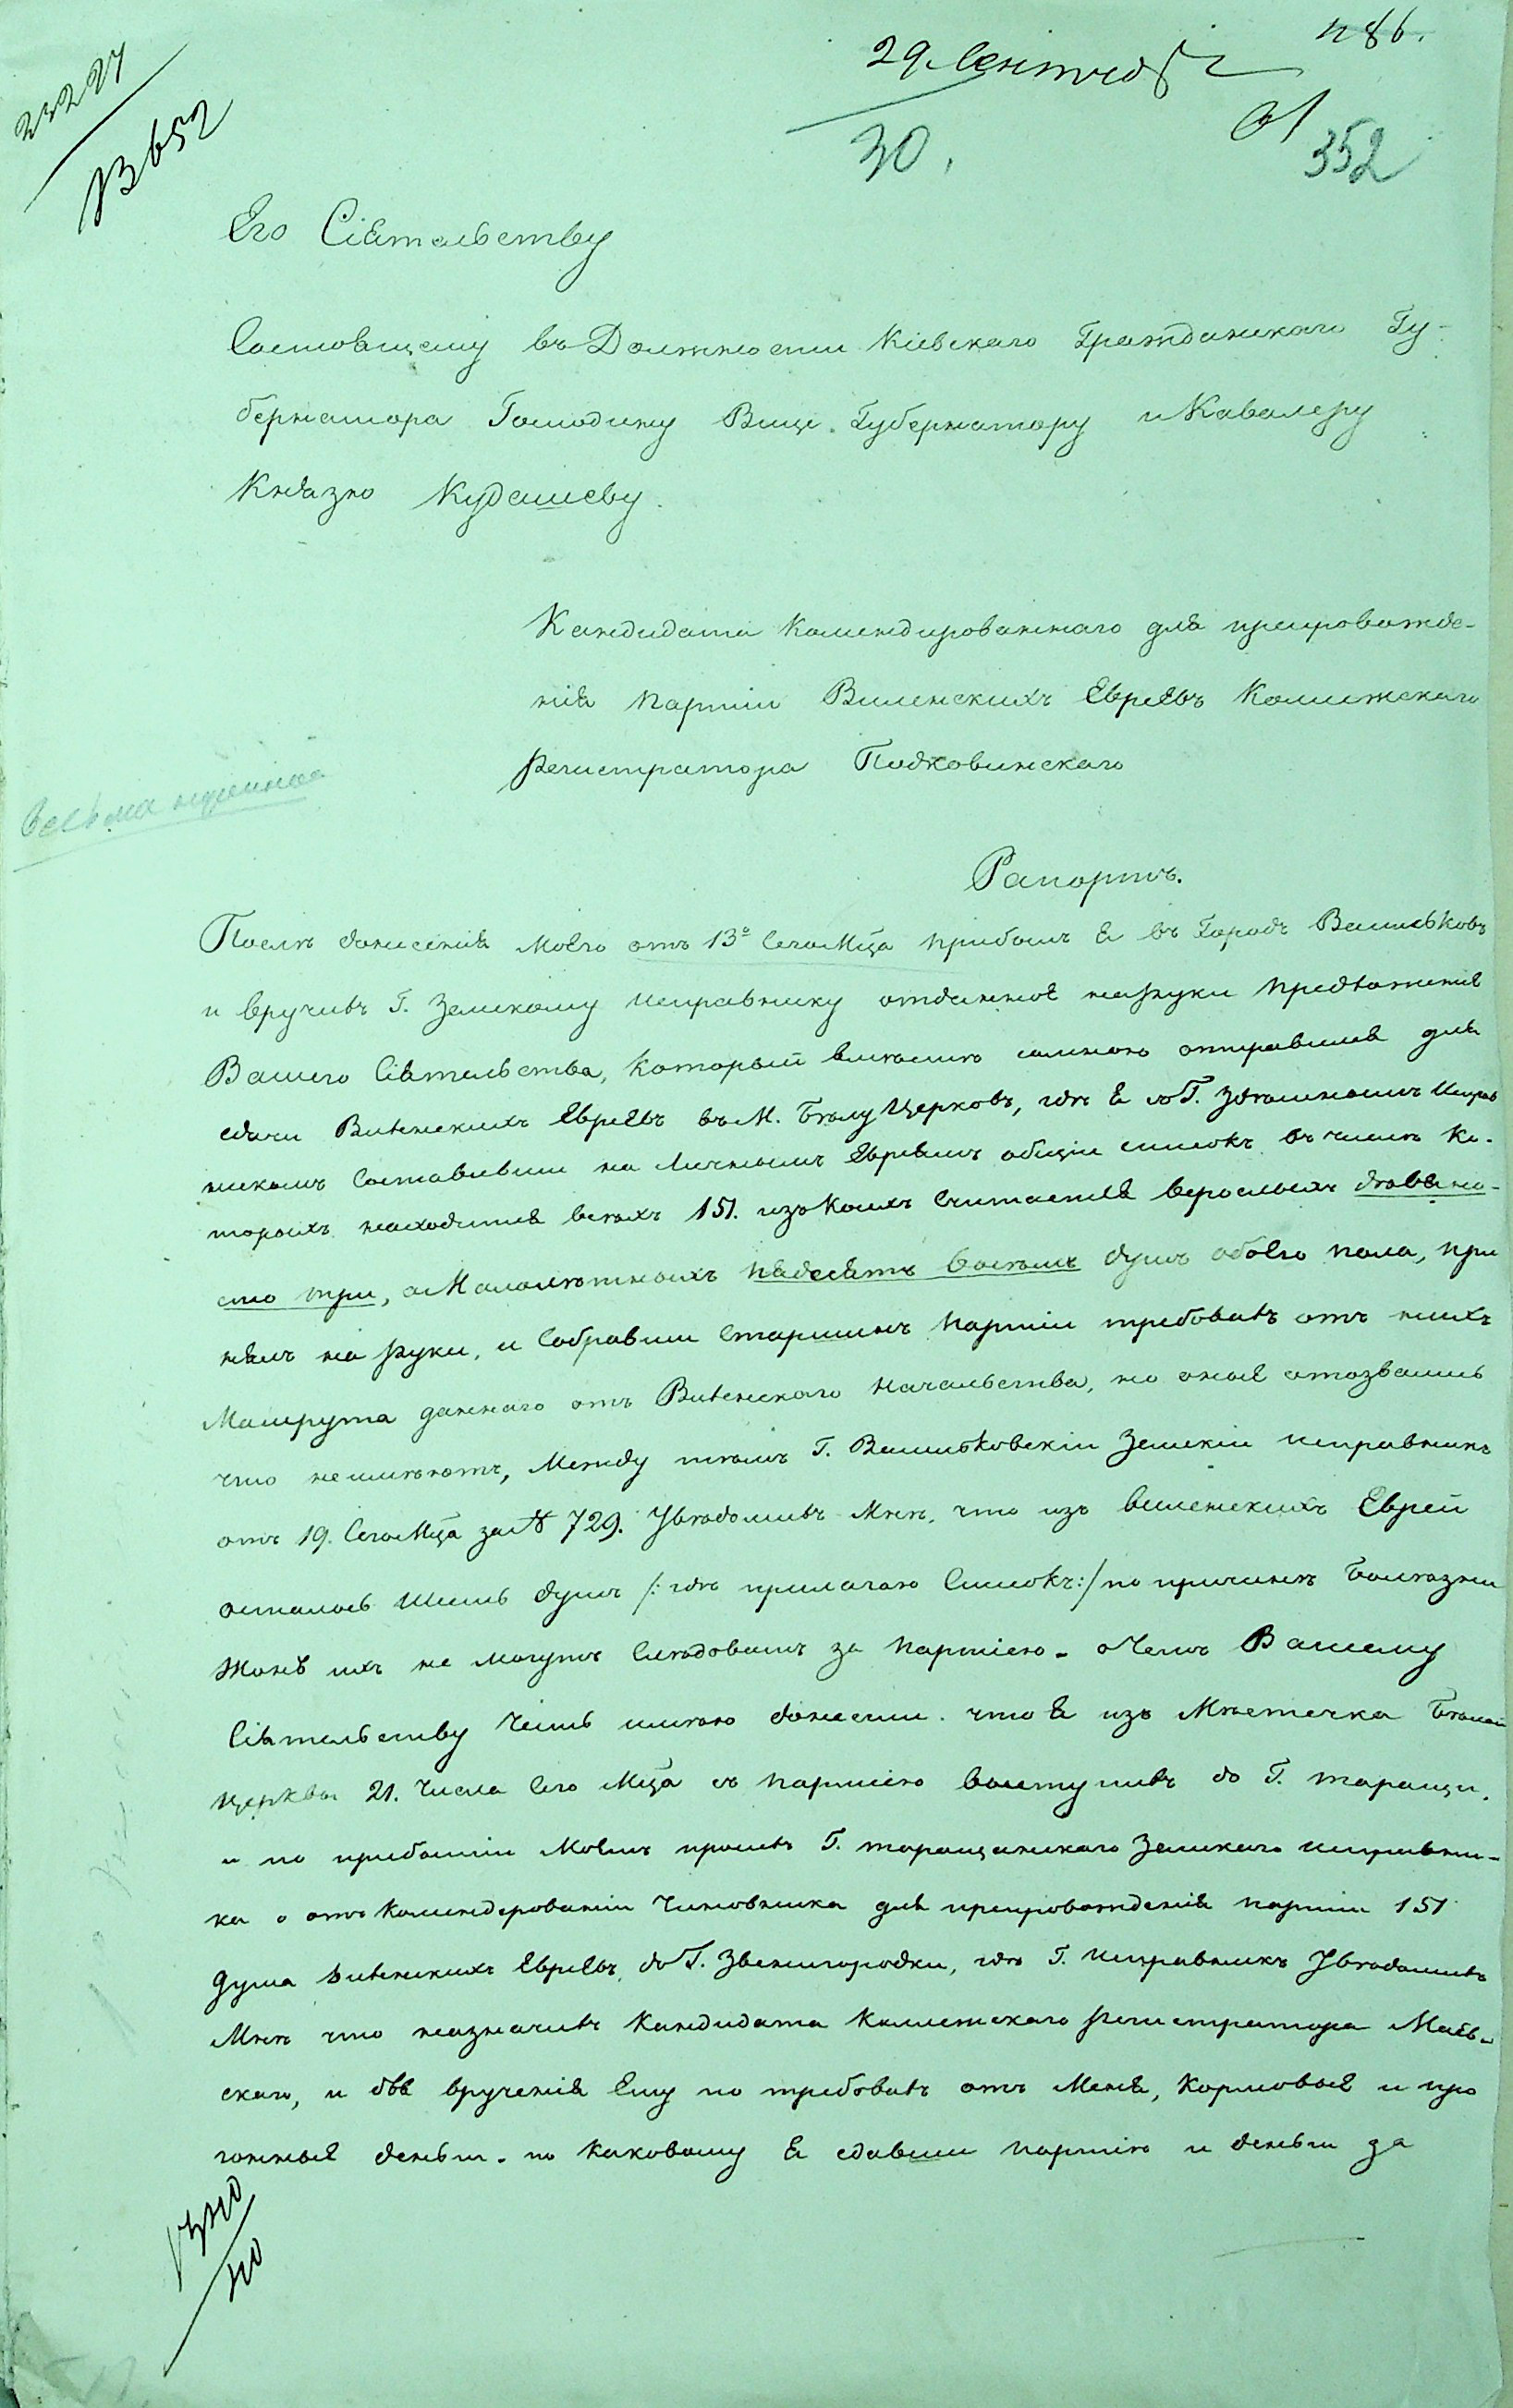 29. Сентября
486.
30.
352
23224
13652
Его Сіятельству
Состоящему въ Должности Кіевскаго Гражданскаго Гу-
бернатора Господину Вице. Губернатору и Кавалеру
Князю Кудашеву.
Кандидата Командированнаго для препровожде-
нія партіи Виленскихъ Евреевъ Колежскаго
Регистратора Подховинскаго
Весьма нужное
Рапортъ.
Послѣ донесенія Моего отъ 13º Сего Мца прибылъ я въ Городъ Васильковъ
и вручивъ Г. Земскому исправнику отданное на руки предложеніе
Вашего Сіятельства, Который вмѣстѣ со мною отправился для
сдачи Виленскихъ Евреевъ въ М. Бѣлу Церковъ, гдѣ я съ Г. здѣшнымъ Исправ
никомъ Составивши на Личныхъ Евреевъ общіи списокъ въ числѣ Ко-
торыхъ находится всѣхъ 151. изъ Коихъ Считается верослыхъ девяно-
сто три, а Малолѣтныхъ пядесятъ восемъ душъ обоего пола, при
нялъ на руки, и Собравши Старшинъ партіи требовалъ отъ нихъ
Маршрута даннаго отъ Виленскаго Началства, но оные отозвались
что не имѣютъ, Между тѣмъ Г. Васильковскіи Земскіи исправникъ
отъ 19. Сего Мца за № 729. Увѣдомивъ Мнѣ, что изъ виленскихъ Евреи
осталось шесть душъ /: гдѣ прилагаю Списокъ :/ по причинѣ Болѣзни
жонъ ихъ не могутъ Слѣдовать за партіею - о Чемъ Вашему
Сіятельству Честь имѣю донести. что я изъ Мѣстечка Бѣлой
Церквы 21. Числа Сего Мца съ партіею выступивъ до Г. таращи,
и по прибытіи Моемъ просивъ Г. таращанскаго Земскаго исправни-
ка о откомандированіи Чиновника для препровожденія партіи 151
душа виленскихъ Евреевъ до Г. Звенигородки, гдѣ Г. исправникъ Увѣдомивъ
Мнѣ что назначивъ Кандидата Колежскаго регистратора Маев-
скаго, и для врученія Ему по требовавъ отъ Меня, Кормовые и про
гонные деньги. по Каковому я сдавши партію и деньги за